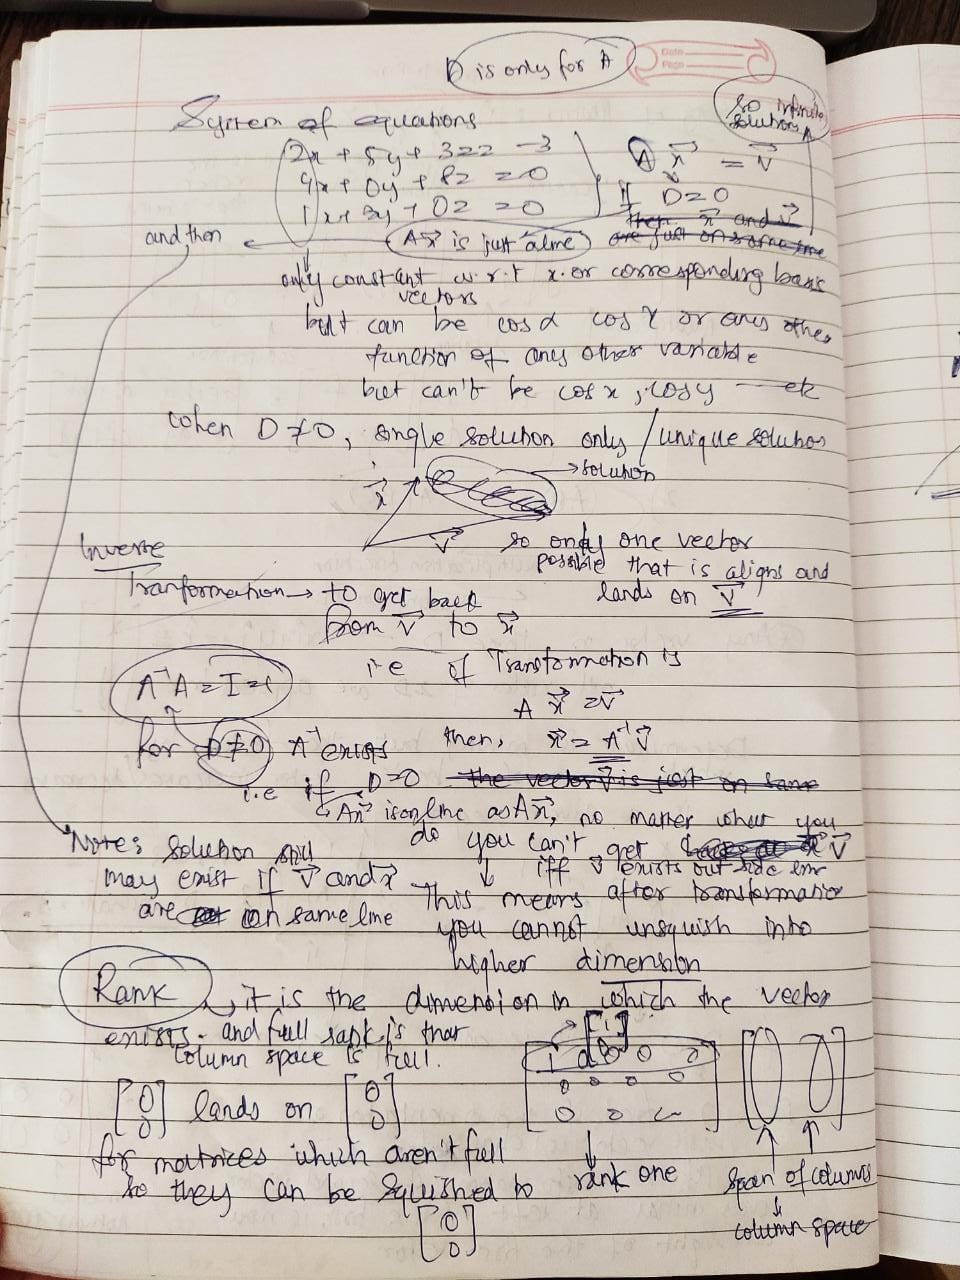 D is only for A
Date
Page
So infinite
solutions
System of equations
2x + 5y + 3z = -3
4x + 0y + 8z = 0
1x + 3y + 0z = 0
A x⃗ = v⃗
If D=0
then x⃗ and v⃗
are just on same line
and then
Ax⃗ is just a line
only constant w.r.t x or corresponding basis
vectors
but can be cos α cos γ or any other
function of any other variable
but can't be cos x, cos y — etc
when D≠0, single solution only / unique solution
→ solution
x⃗
v⃗
so only one vector
possible that is aligns and
lands on v⃗
Inverse
Tranformation → to get back
from v⃗ to x⃗
i.e of Transformation is
A x⃗ = v⃗
A⁻¹A = I = 1
for D≠0 A⁻¹ exists then, x⃗ = A⁻¹ v⃗
i.e if D=0 the vector v⃗ is just on same
Ax⃗ is on line as Ax⃗, no matter what you
do you can't get v⃗
iff v⃗ exists out side line
Note: Solution still
may exist if v⃗ and x⃗
are on same line
This means after transformation
you cannot unsquish into
higher dimension
Rank → it is the dimension in which the vector
exists. and full rank is that
column space is full.
[0 0 0] lands on [0 0]
for matrices which aren't full
so they can be squished to
[0 0]
rank one
span of columns
column space